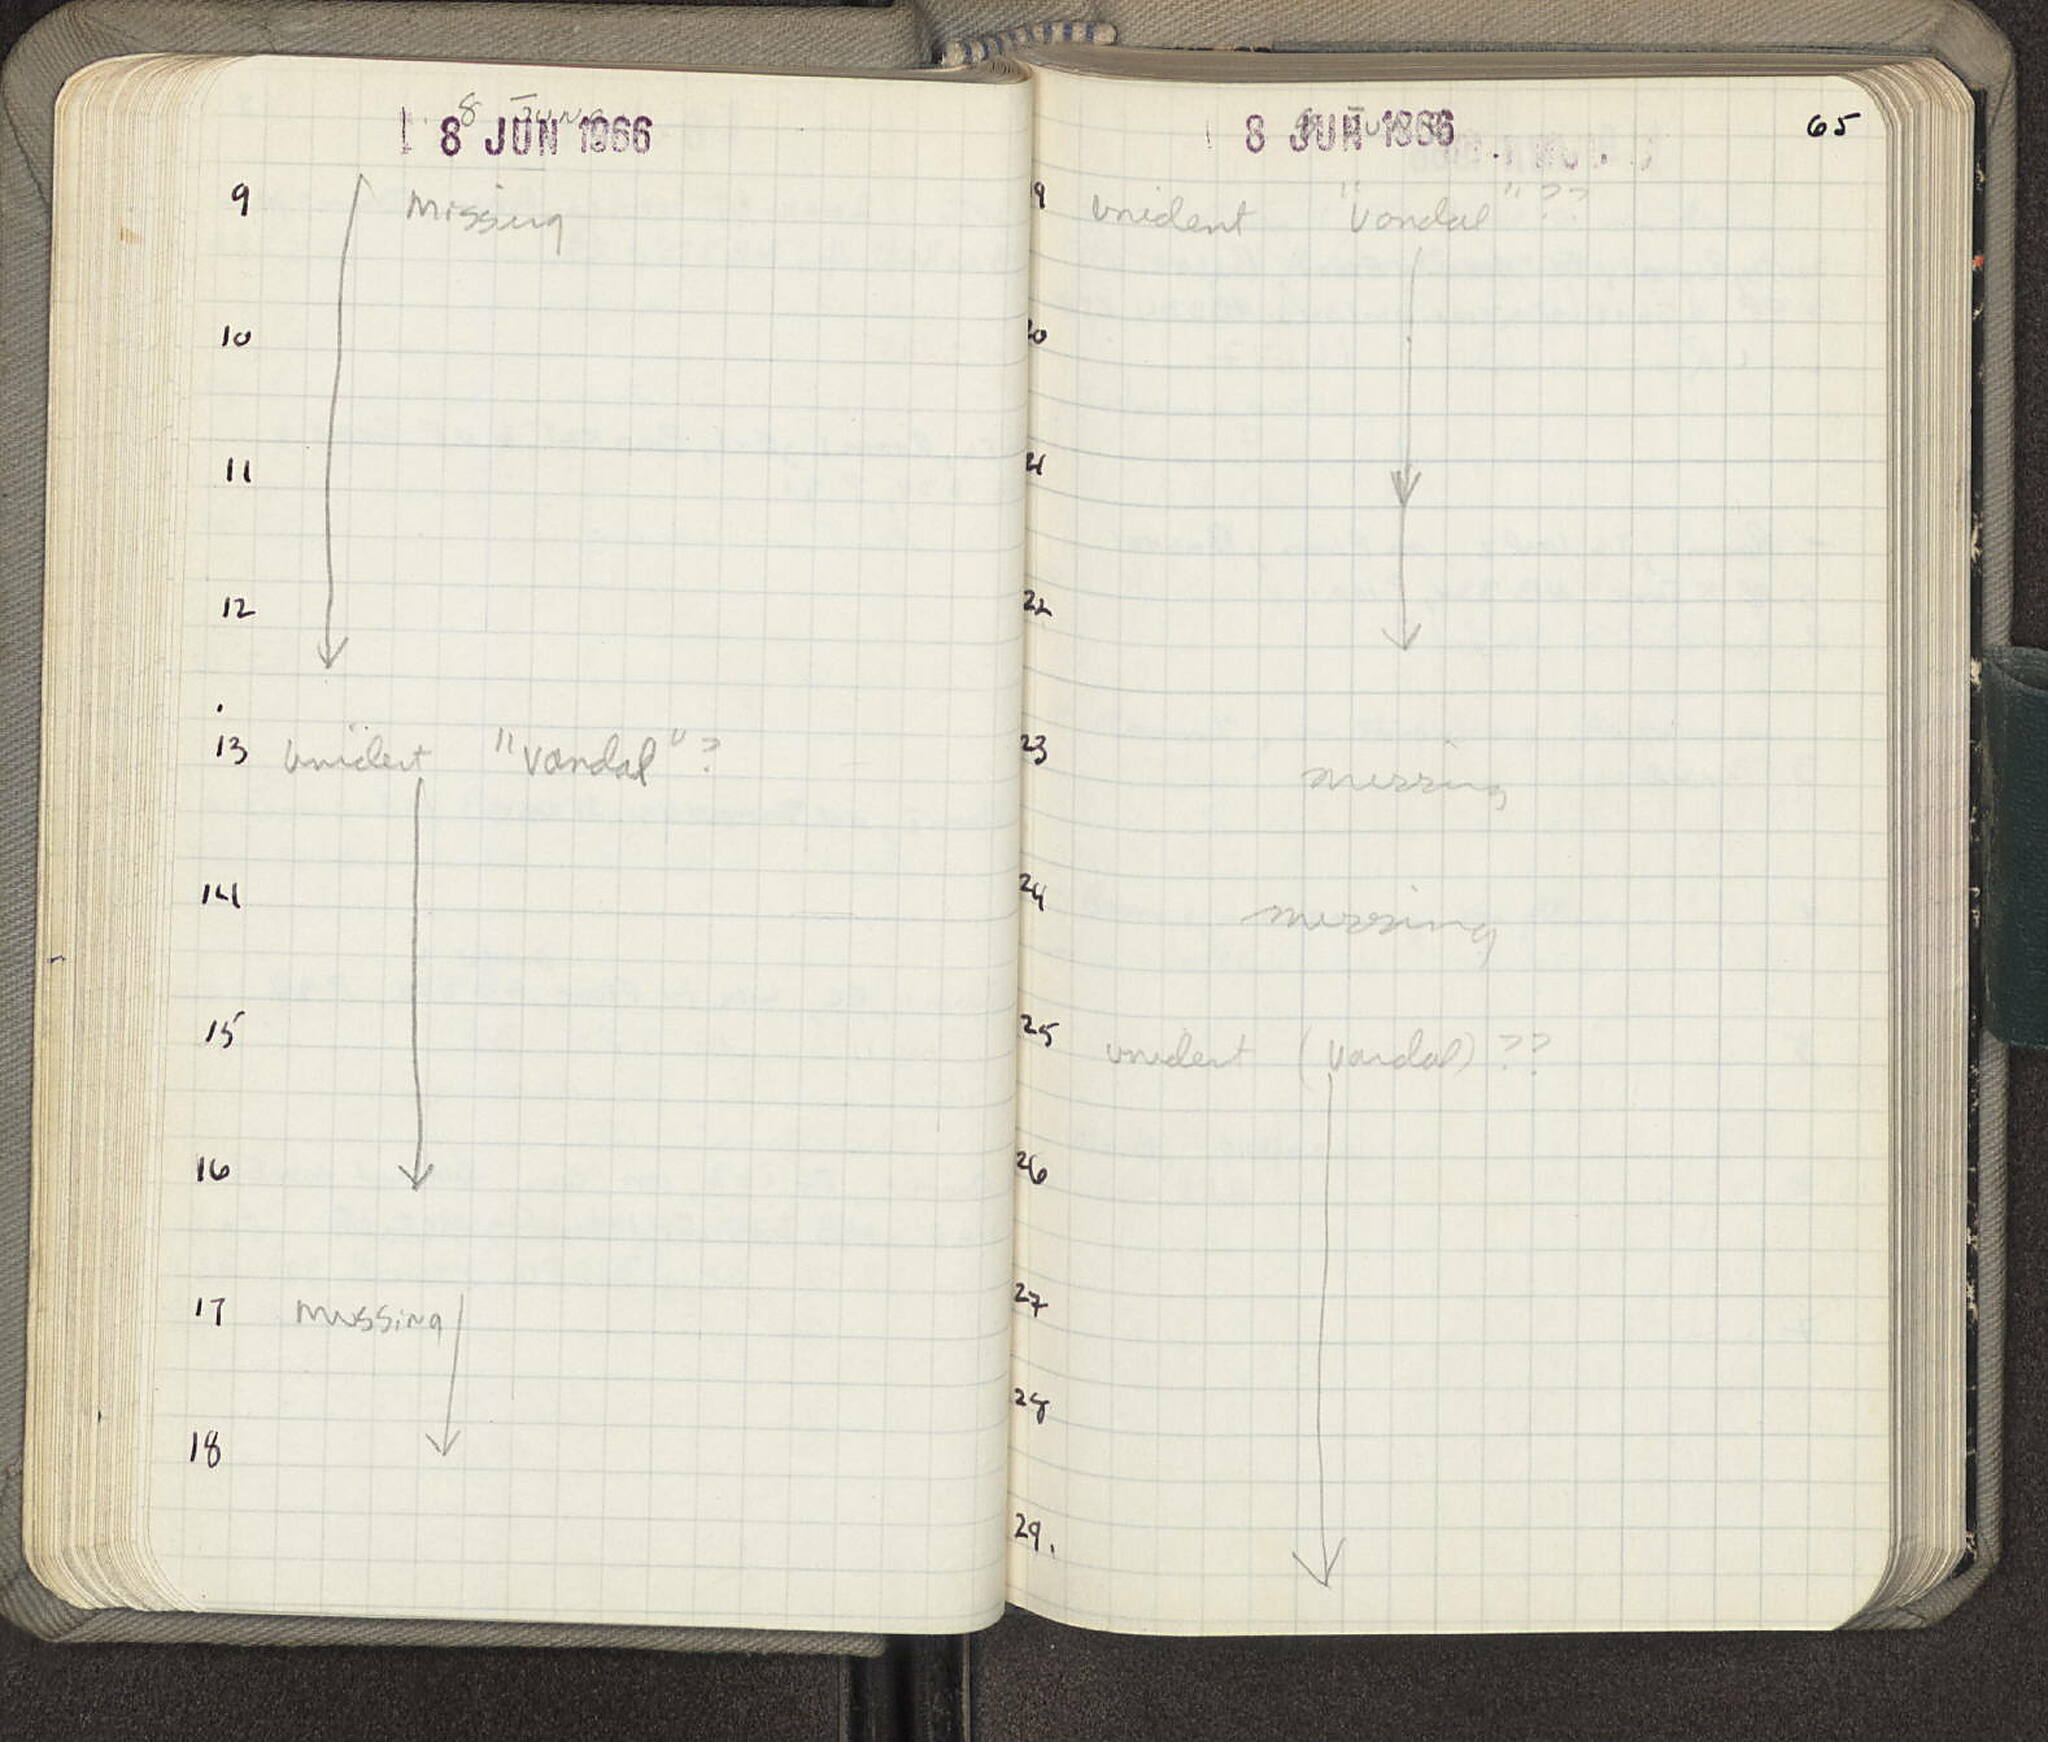 8 June
8 JUN 1966
9 Missing
10
11
12
13 Unident "Vandal"?
14
15
16
17 Missing
18
8 June
8 JUN 1966
65
19 Unident "Vandal"??
20
21
22
23 missing
24 missing
25 unident (Vandal)??
26
27
28
29.